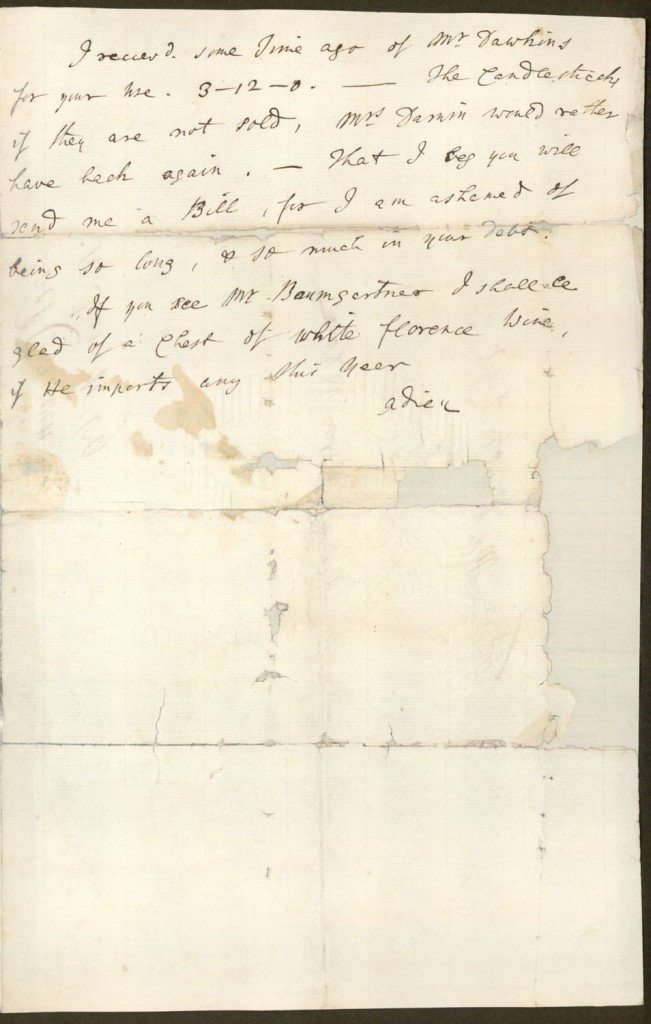 I receivd. some Time ago of Mr Dawkins
for your Use. 3-12-0. — The Candlesticks,
if they are not sold, Mrs Darwin would rather
have back again. — That I beg you will
send me a Bill, for I am ashamed of
being so long, & so much in your Debt.
If you see Mr Baumgartner I shall be
glad of a Chest of white florence Wine,
if He imports any this Year
adieu